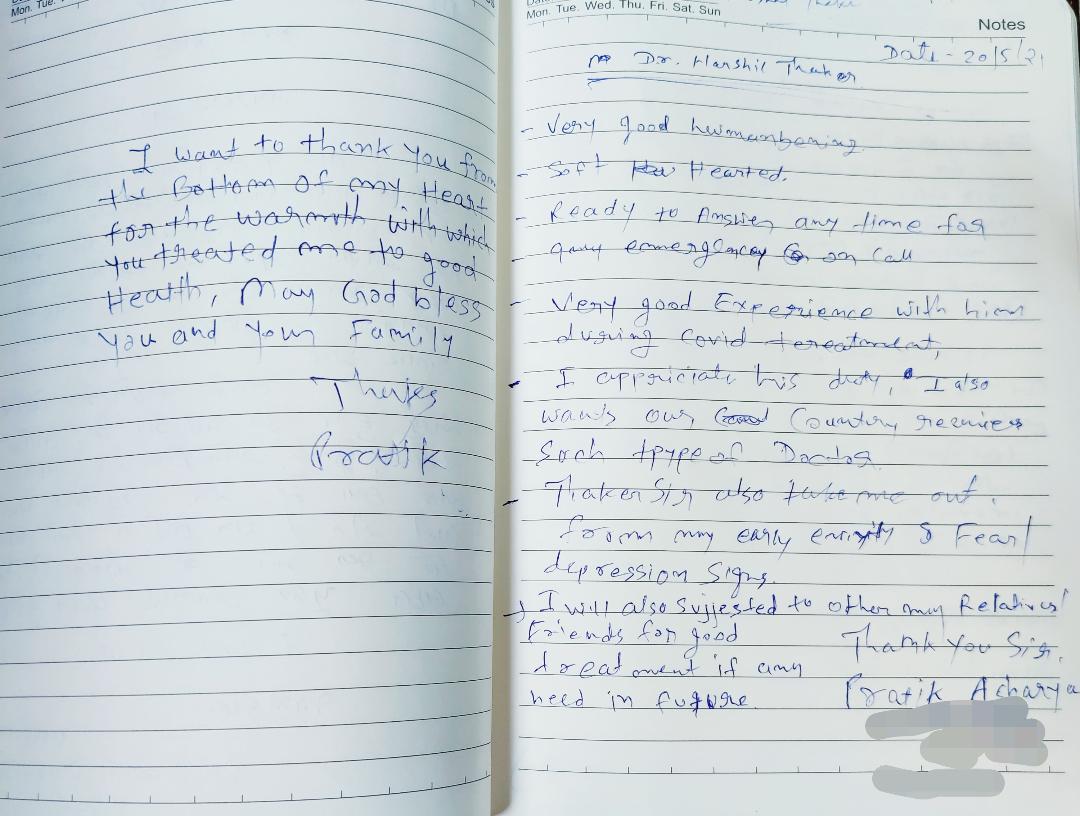 Mon. Tue.
I want to thank you from
the Bottom of my Heart
for the warmth with which
you treated me to good
Health, May God bless
you and your Family
Thanks
Pratik
Mon. Tue. Wed. Thu. Fri. Sat. Sun
Notes
Date - 20/5/21
Dr. Harshil Thaker
- Very good humanbening
- Soft Hearted.
- Ready to Answer any time for
- any emmergency on call
- Very good Experience with him
during Covid tereatment,
- I appriciate his duty, I also
wants our Country requires
Such tpype of Doctor
- Thaker Sir also take me out.
from my early & Fear/
depression Signs.
→ I will also sujjested to other my Relatives/
Friends for good
treatment if any
need in future.
Thank You Sir.
Pratik Acharya